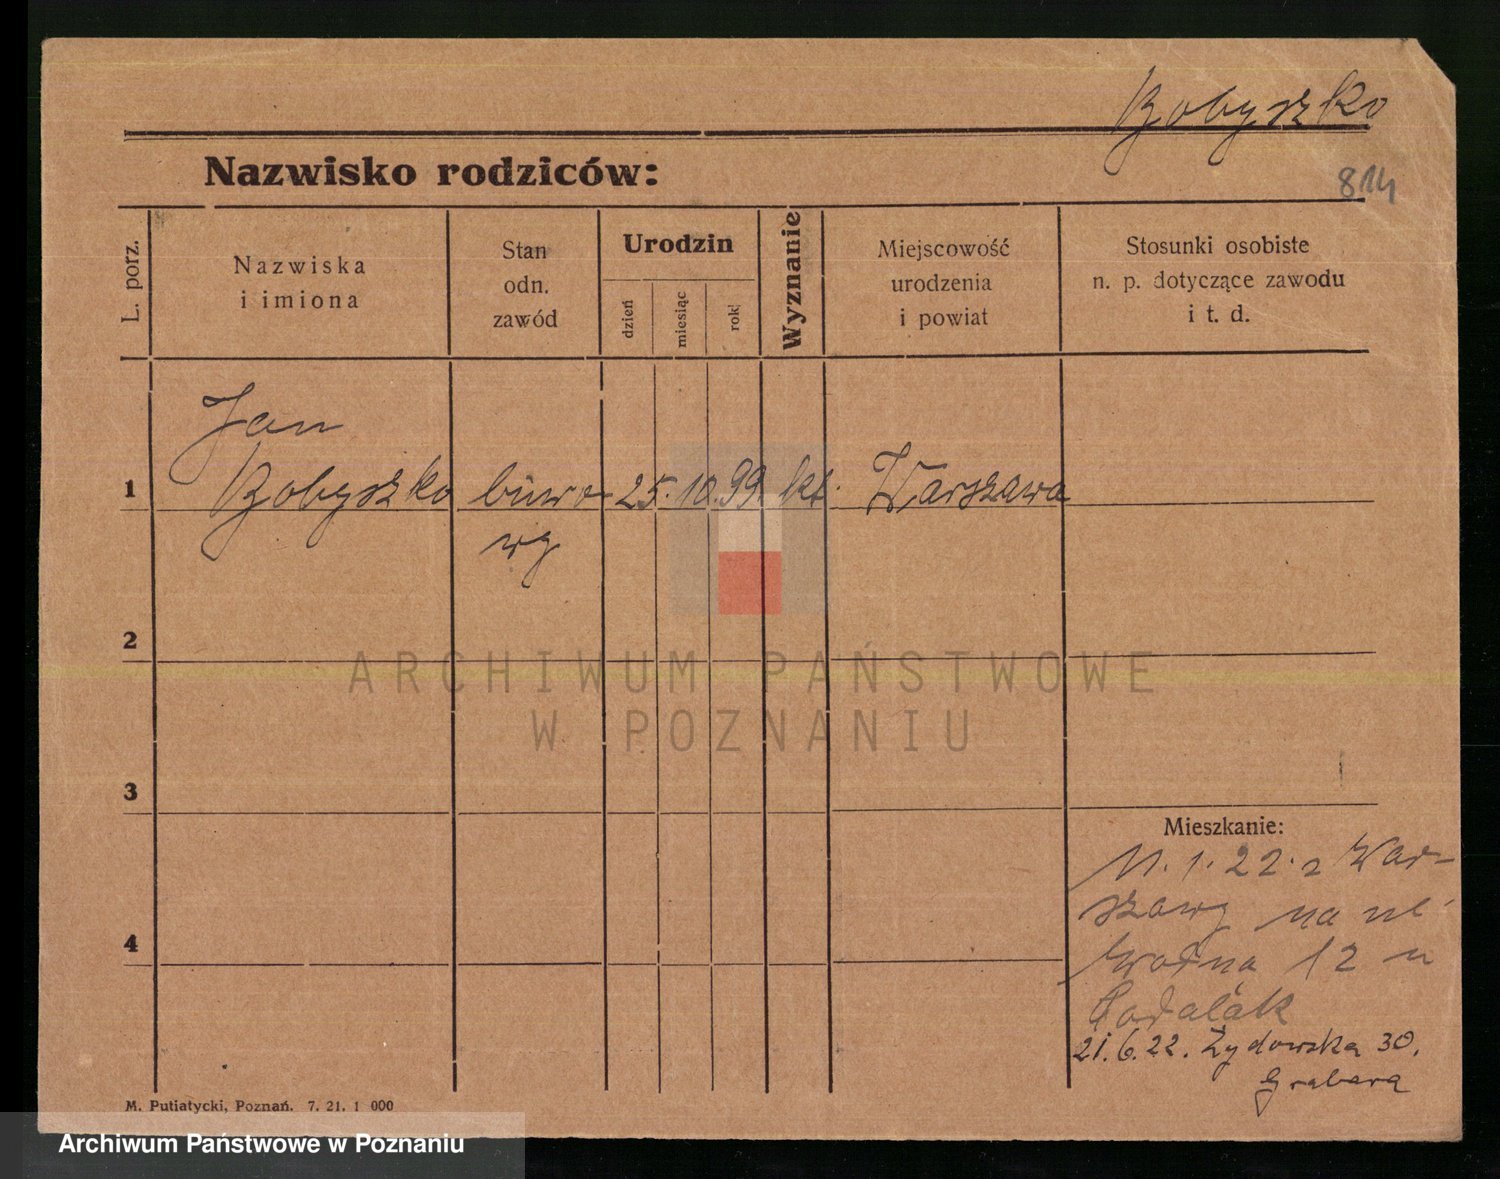 Bobyszko
Nazwisko rodziców:
814
L. porz.
Nazwiska
i imiona
Stan
odn.
zawód
Urodzin
dzień
miesiąc
rok
Wyznanie
Miejscowość
urodzenia
i powiat
Stosunki osobiste
n. p. dotyczące zawodu
i t. d.
Jan
1 Bobyszko biuro- 25. 10. 99. kt. Warszawa
wy
2
ARCHIWUM PAŃSTWOWE
W POZNANIU
3
Mieszkanie:
11. 1. 22. z War-
szawy na ul.
Wodna 12 u
21. 6. 22. Żydowska 30.
Grabara
4
M. Putiatycki, Poznań. 7. 21. 1 000
Archiwum Państwowe w Poznaniu